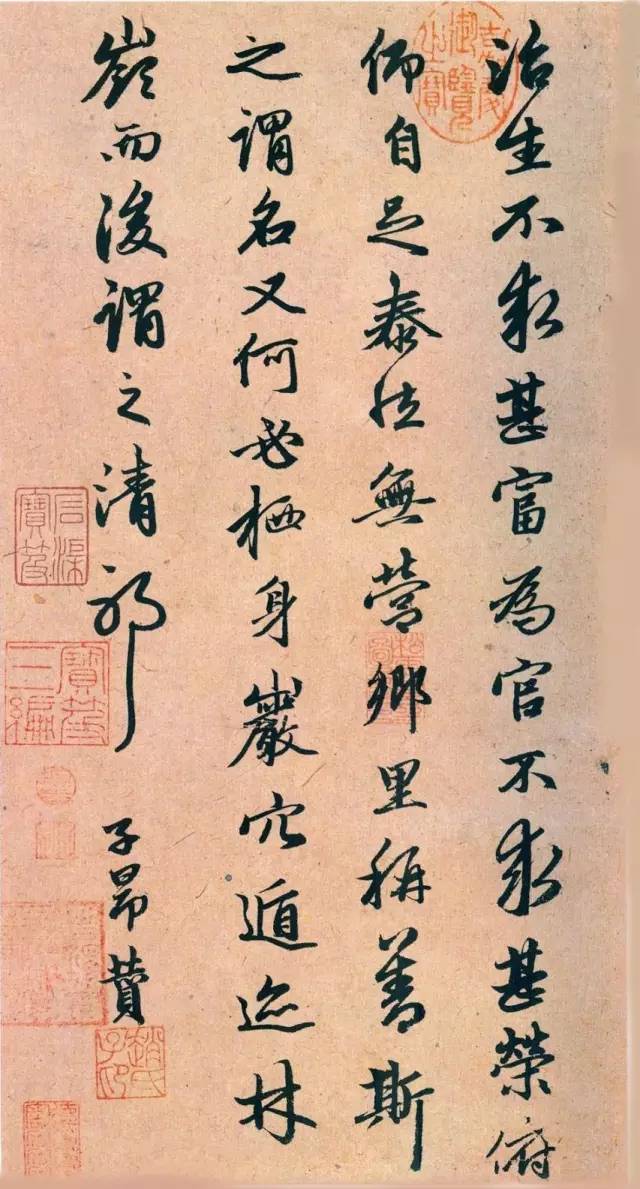 治生不求甚富為官不求甚榮俯
仰自足泰然無營鄉里稱善斯
之謂名又何必栖身巖穴遁迹林
嶺而後謂之清耶
子昂贊
嘉慶御覽之寶
石渠寶笈
寶笈三編
趙氏子昂